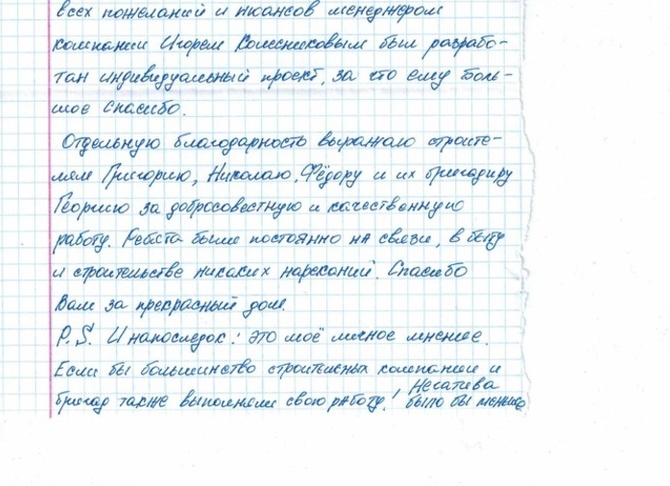 всех пожеланий и нюансов менеджером
компании Игорем Колесниковым был разрабо-
тан индивидуальный проект, за что ему боль-
шое спасибо.
Отдельную благодарность выражаю строите-
лям Григорию, Николаю, Фёдору и их бригадиру
Георгию за добросовестную и качественную
работу. Ребята были постоянно на связи, в быту
и строительстве никаких нареканий. Спасибо
Вам за прекрасный дом.
P.S. И напоследок: это моё личное мнение.
Если бы большинство строительных компаний и
бригад также выполняли свою работу! Негатива
было бы меньше